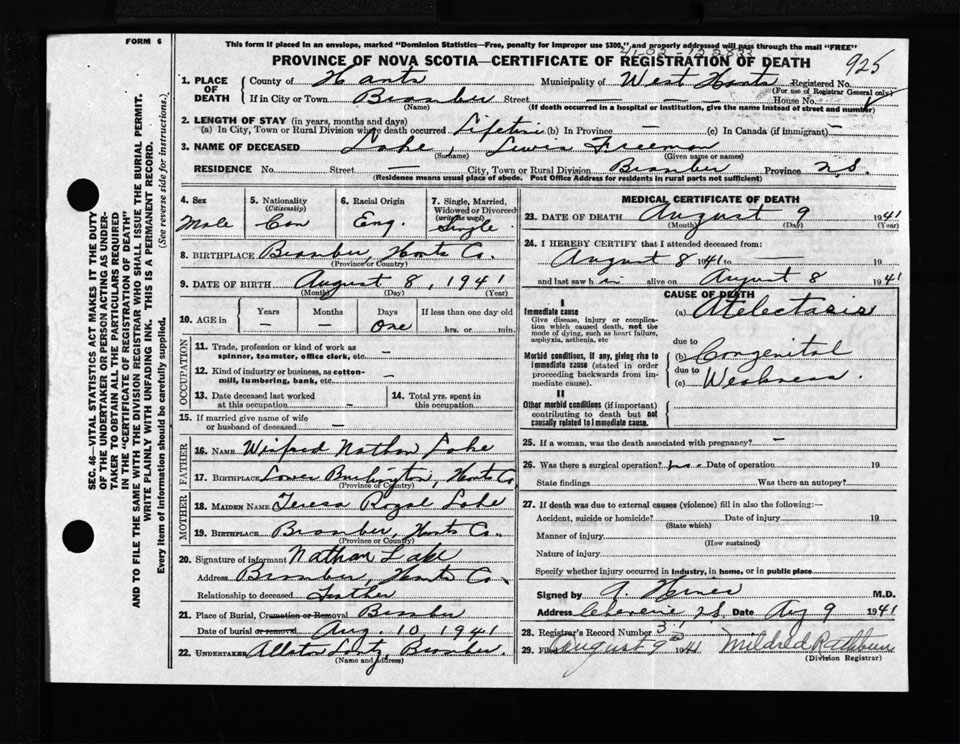 FORM 6
This form if placed in an envelope, marked "Dominion Statistics—Free, penalty for improper use $300," and properly addressed will pass through the mail "FREE"
PROVINCE OF NOVA SCOTIA—CERTIFICATE OF REGISTRATION OF DEATH
925
1. PLACE OF DEATH
County of Hants Municipality of West Hants Registered No.
(For use of Registrar General only)
If in City or Town Bramber Street — House No.
(Name) (If death occurred in a hospital or institution, give the name instead of street and number)
2. LENGTH OF STAY (in years, months and days)
(a) In City, Town or Rural Division where death occurred Lifetime (b) In Province — (c) In Canada (if immigrant) —
3. NAME OF DECEASED Lake, Lewis Freeman
(Surname) (Given name or names)
RESIDENCE No. Street — City, Town or Rural Division Bramber Province N.S.
(Residence means usual place of abode. Post Office Address for residents in rural parts not sufficient)
4. Sex
Male
5. Nationality (Citizenship)
Can
6. Racial Origin
Eng.
7. Single, Married, Widowed or Divorced (write the word)
Single
8. BIRTHPLACE Bramber, Hants Co.
(Province or County)
9. DATE OF BIRTH August 8, 1941
(Month) (Day) (Year)
10. AGE in Years Months Days If less than one day old
— — one hrs. or min.
OCCUPATION
11. Trade, profession or kind of work as spinner, teamster, office clerk, etc. —
12. Kind of industry or business, as cotton-mill, lumbering, bank, etc. —
13. Date deceased last worked at this occupation —
14. Total yrs. spent in this occupation
15. If married give name of wife or husband of deceased —
FATHER
16. NAME Winfred Nathan Lake
17. BIRTHPLACE Lower Burlington, Hants Co.
(Province or Country)
MOTHER
18. MAIDEN NAME Teresa Royal Lake
19. BIRTHPLACE Bramber, Hants Co.
(Province or Country)
20. Signature of informant Nathan Lake
Address Bramber, Hants Co.
Relationship to deceased Father
21. Place of Burial, Cremation or Removal Bramber
Date of burial or removal Aug. 10, 1941
22. UNDERTAKER Bramber.
(Name and address)
MEDICAL CERTIFICATE OF DEATH
23. DATE OF DEATH August 9 1941
(Month) (Day) (Year)
24. I HEREBY CERTIFY that I attended deceased from:
August 8 1941 to — 19
and last saw him alive on August 8 1941
CAUSE OF DEATH
I
Immediate cause
Give disease, injury or complication which caused death, not the mode of dying, such as heart failure, asphyxia, asthenia, etc
(a) Atelectasis
due to
Morbid conditions, if any, giving rise to immediate cause (stated in order proceeding backwards from immediate cause).
(b) Congenital
due to
(c) Weakness.
II
Other morbid conditions (if important) contributing to death but not causally related to immediate cause.
25. If a woman, was the death associated with pregnancy? —
26. Was there a surgical operation? no - Date of operation 19
State findings Was there an autopsy?
27. If death was due to external causes (violence) fill in also the following:—
Accident, suicide or homicide? Date of injury 19
(State which)
Manner of injury
(How sustained)
Nature of injury
Specify whether injury occurred in industry, in home, or in public place
Signed by M.D.
Address Cheverie N.S. Date Aug 9 1941
28. Registrar's Record Number 31
29. Filed August 9th 1941 Mildred Rathburn
(Division Registrar)
SEC. 46—VITAL STATISTICS ACT MAKES IT THE DUTY
OF THE UNDERTAKER OR PERSON ACTING AS UNDER-
TAKER TO OBTAIN ALL THE PARTICULARS REQUIRED
IN THE "CERTIFICATE OF REGISTRATION OF DEATH"
AND TO FILE THE SAME WITH THE DIVISION REGISTRAR WHO SHALL ISSUE THE BURIAL PERMIT.
WRITE PLAINLY WITH UNFADING INK. THIS IS A PERMANENT RECORD.
Every item of information should be carefully supplied. (See reverse side for instructions.)